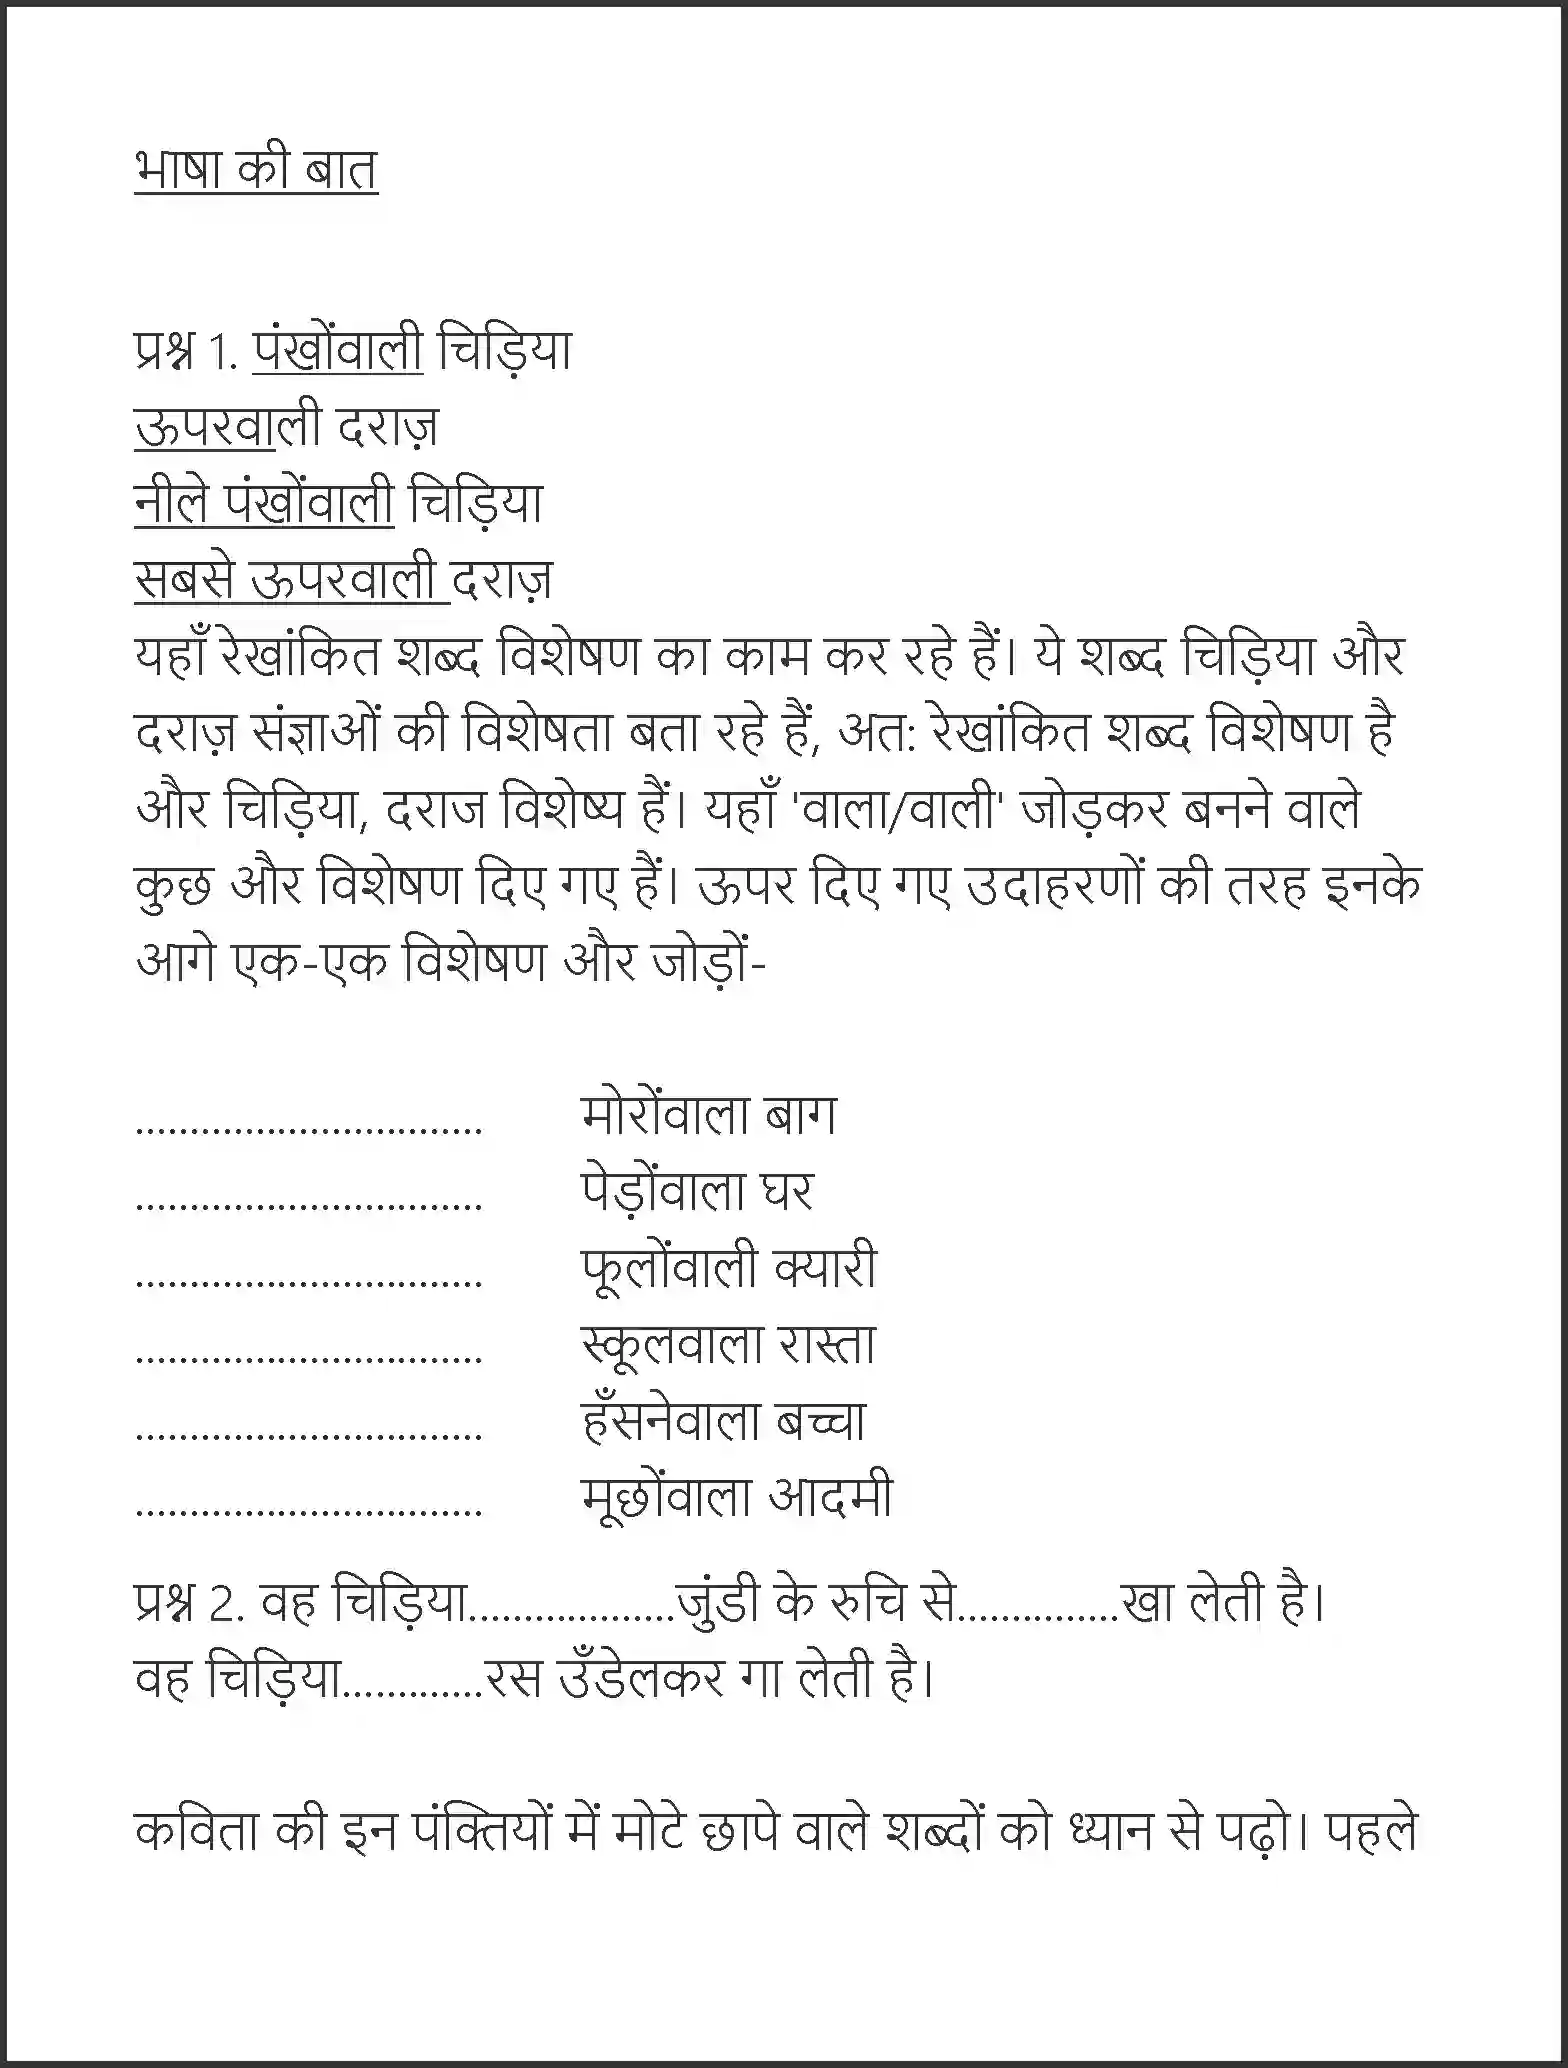 भाषा की बात
प्रश्न 1. पंखोंवाली चिड़िया
ऊपरवाली दराज़
नीले पंखोंवाली चिड़िया
सबसे ऊपरवाली दराज़
यहाँ रेखांकित शब्द विशेषण का काम कर रहे हैं। ये शब्द चिड़िया और
दराज़ संज्ञाओं की विशेषता बता रहे हैं, अत: रेखांकित शब्द विशेषण है
और चिड़िया, दराज विशेष्य हैं। यहाँ 'वाला/वाली' जोड़कर बनने वाले
कुछ और विशेषण दिए गए हैं। ऊपर दिए गए उदाहरणों की तरह इनके
आगे एक-एक विशेषण और जोड़ों-
................................ मोरोंवाला बाग
................................ पेड़ोंवाला घर
................................ फूलोंवाली क्यारी
................................ स्कूलवाला रास्ता
................................ हँसनेवाला बच्चा
................................ मूछोंवाला आदमी
प्रश्न 2. वह चिड़िया...................जुंडी के रुचि से...............खा लेती है।
वह चिड़िया.............रस उँडेलकर गा लेती है।
कविता की इन पंक्तियों में मोटे छापे वाले शब्दों को ध्यान से पढ़ो। पहले